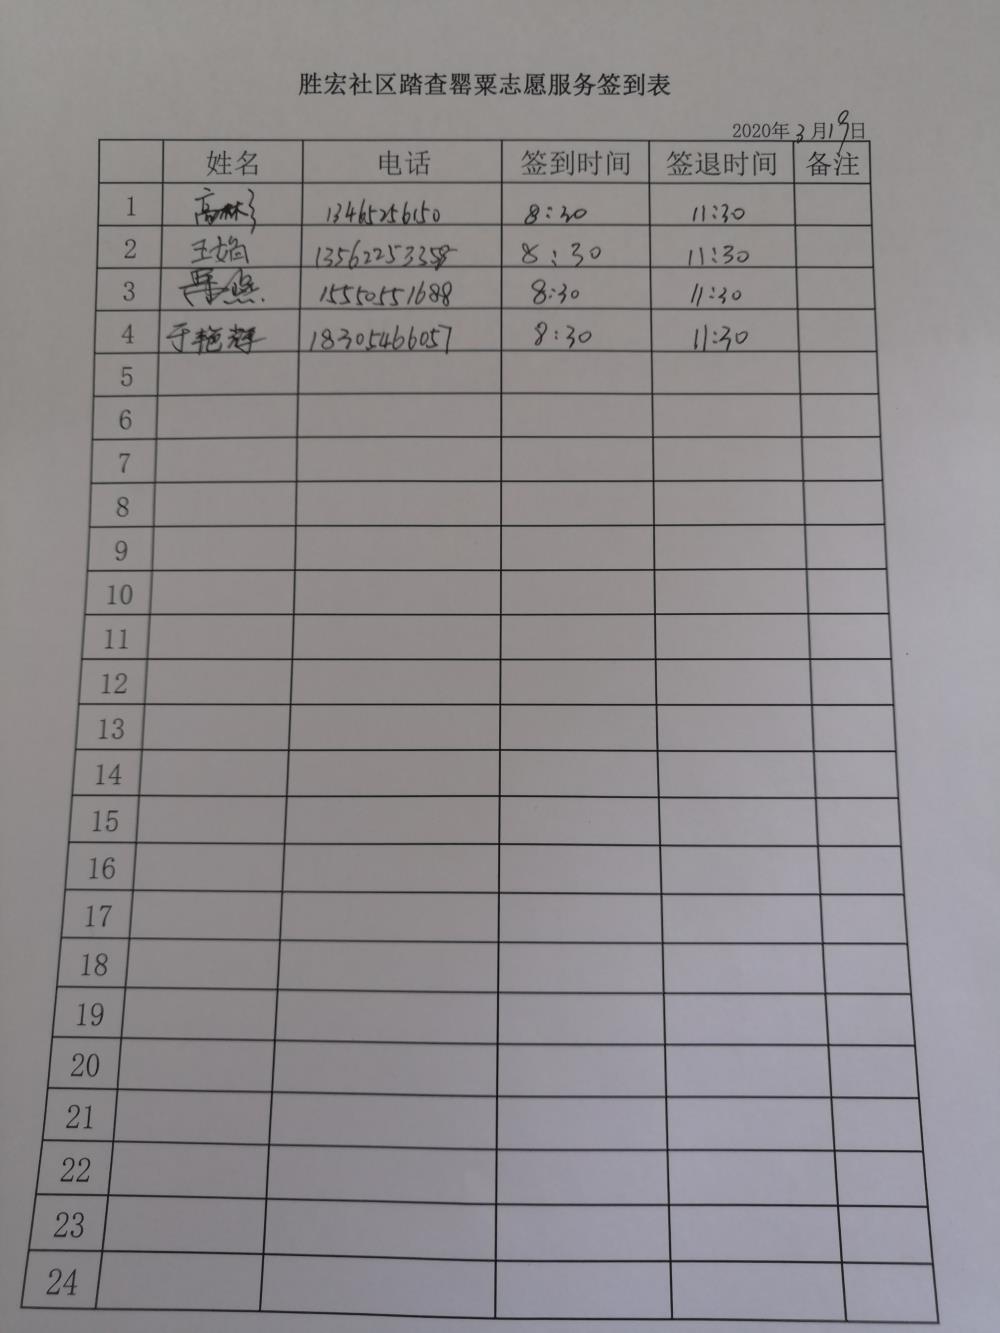 胜宏社区踏查罂粟志愿服务签到表
2020年3月19日
姓名 电话 签到时间 签退时间 备注
1 13465256150 8:30 11:30
2 王娟 13562253358 8:30 11:30
3 15550551688 8:30 11:30
4 于艳辉 18305466057 8:30 11:30
5
6
7
8
9
10
11
12
13
14
15
16
17
18
19
20
21
22
23
24